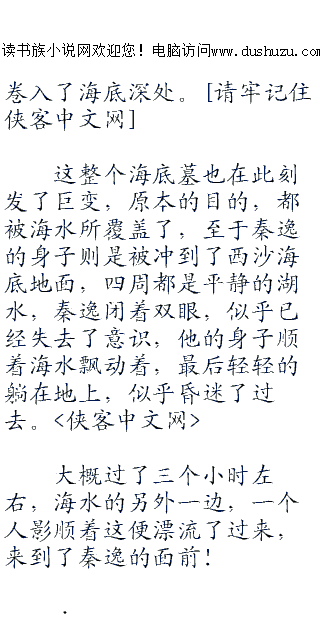 读书族小说网欢迎您！电脑访问www.dushuzu.com
卷入了海底深处。[请牢记住
侠客中文网]
这整个海底墓也在此刻
发了巨变，原本的目的，都
被海水所覆盖了，至于秦逸
的身子则是被冲到了西沙海
底地面，四周都是平静的湖
水，秦逸闭着双眼，似乎已
经失去了意识，他的身子顺
着海水飘动着，最后轻轻的
躺在地上，似乎昏迷了过
去。<侠客中文网>
大概过了三个小时左
右，海水的另外一边，一个
人影顺着这便漂流了过来，
来到了秦逸的面前！
.